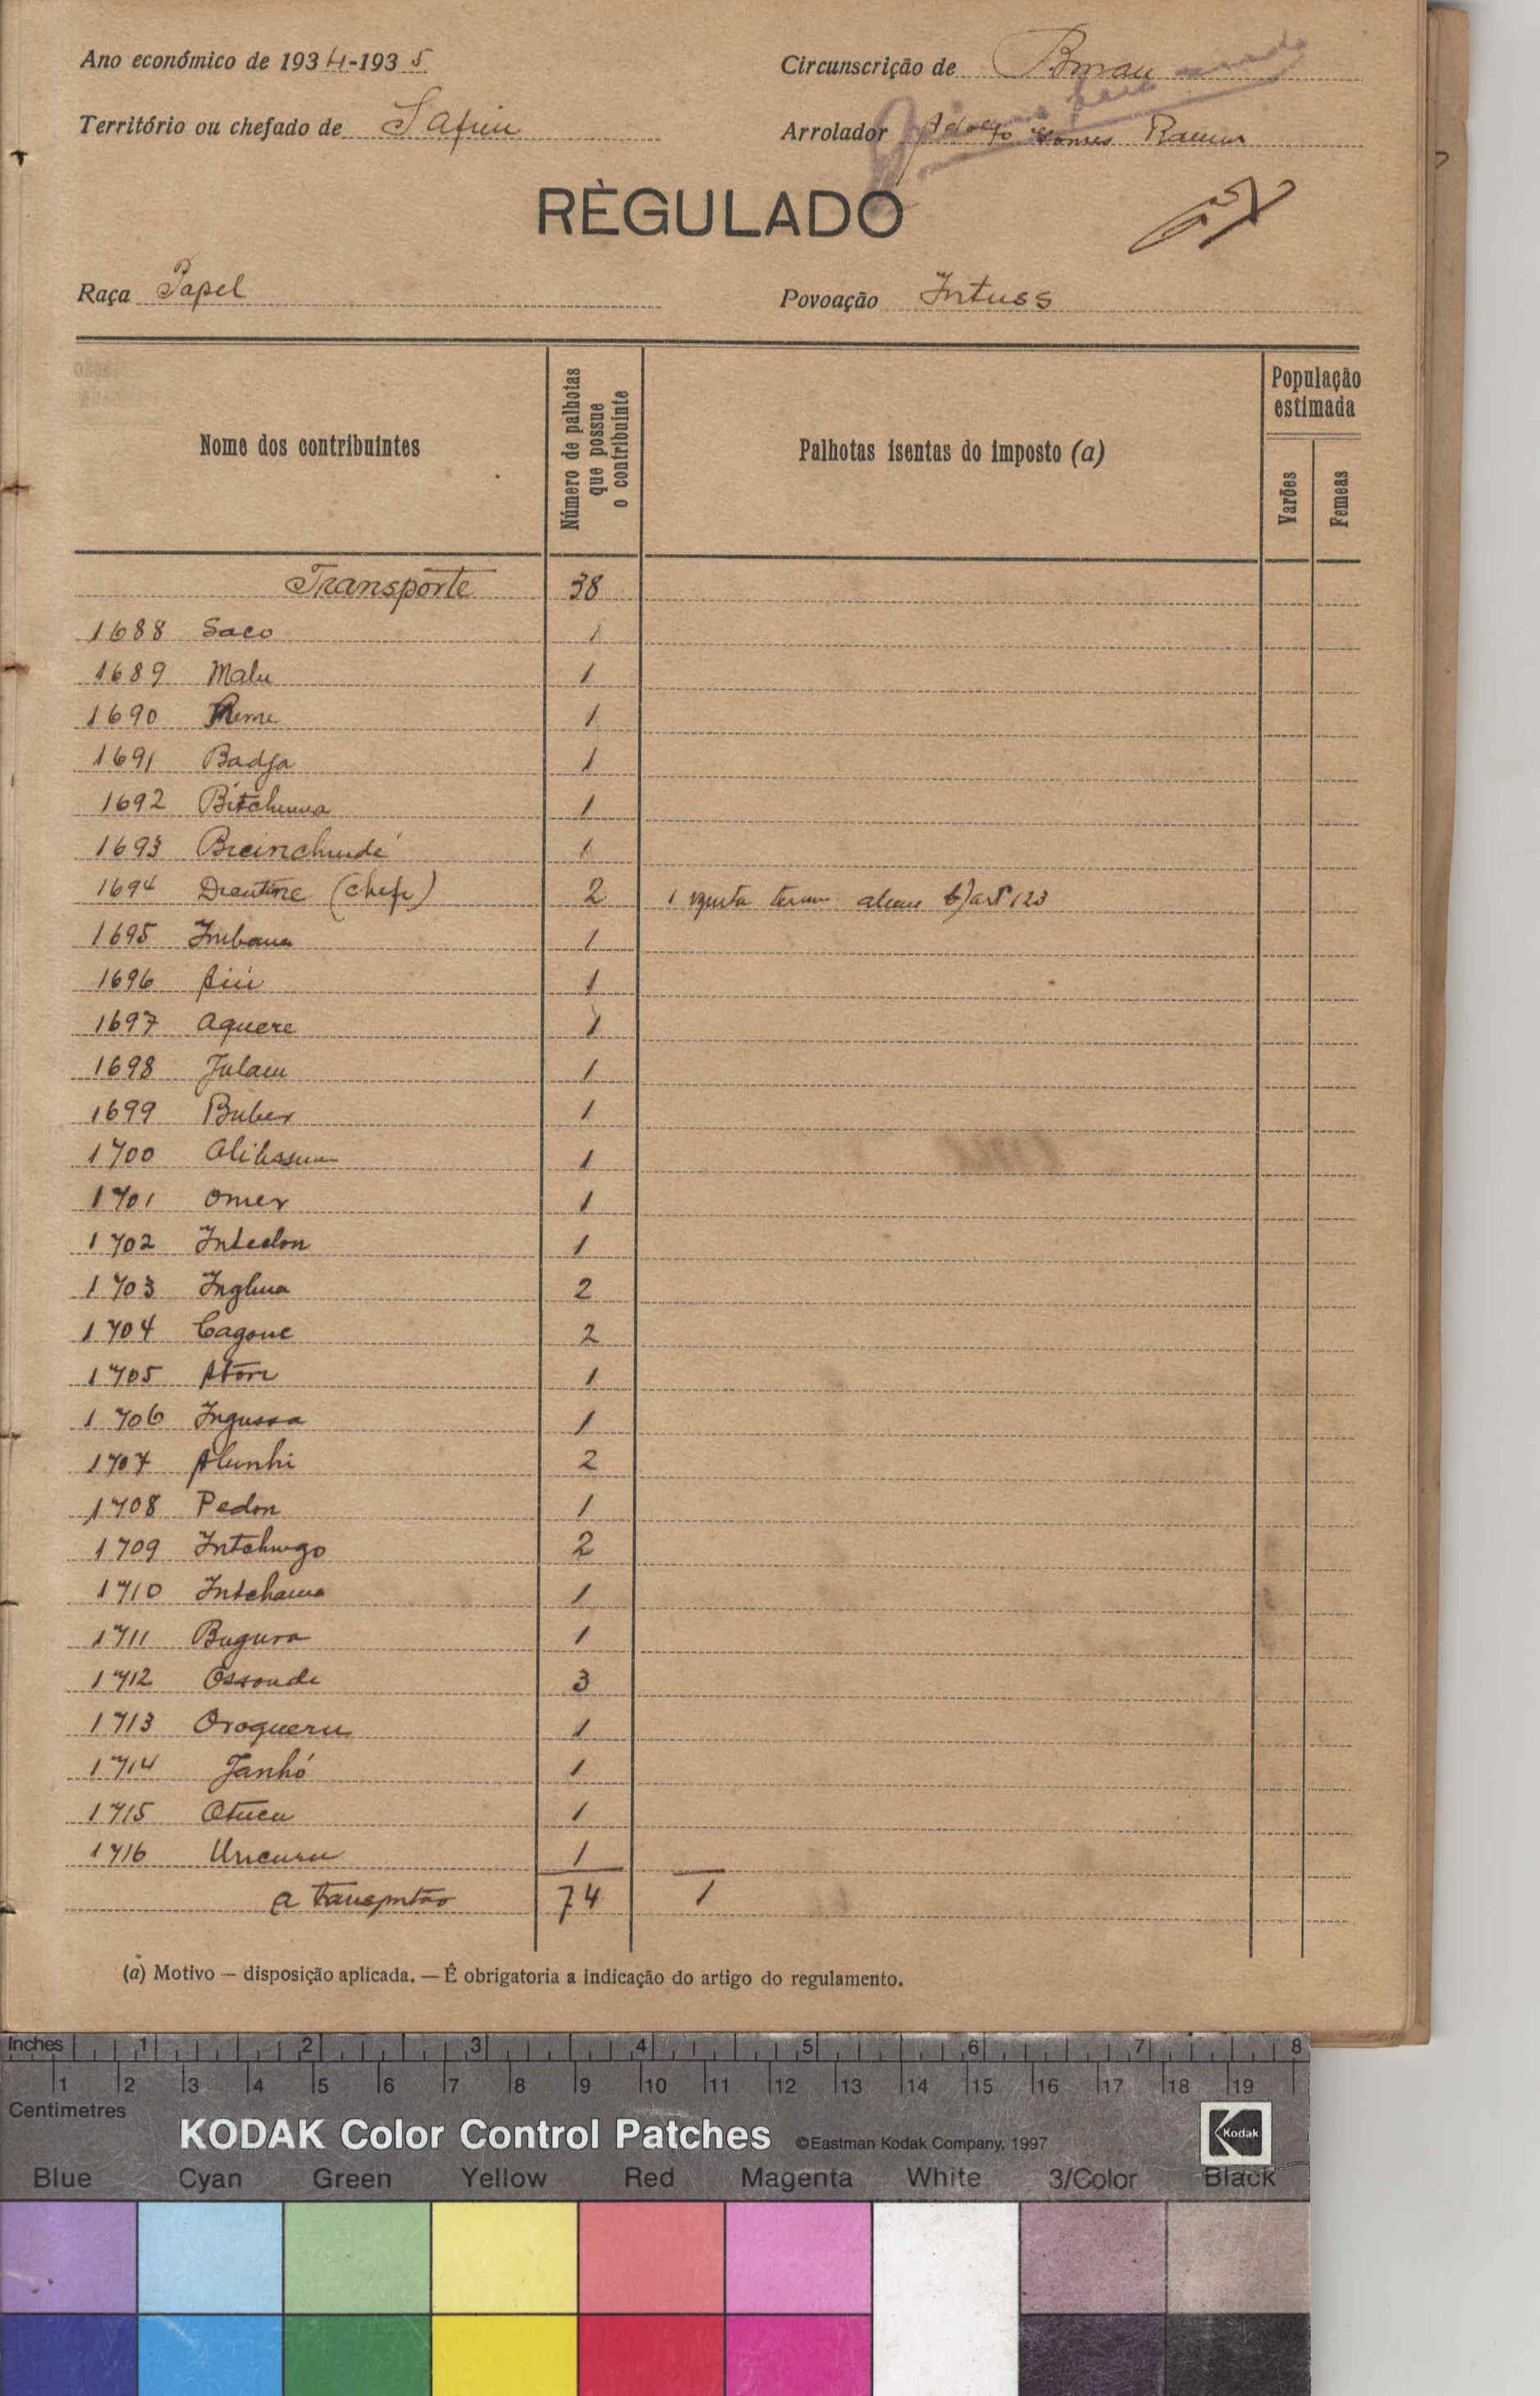 Ano económico de 1934-1935
Circunscrição de Bissau
Território ou chefado de Safim
Arrolador Adolfo Gomes Ramos
RÈGULADO
57
Raça Papel
Povoação Intuss
Nome dos contribuintes
Número de palhotas que possue o contribuinte
Palhotas isentas do imposto (a)
População estimada
Varões
Femeas
Transporte 38
1688 Saco 1
1689 Malu 1
1690 1
1691 Badja 1
1692 1
1693 1
1694 (chefe) 2 1 b) art.º 123
1695 1
1696 1
1697 Aquere 1
1698 Julam 1
1699 Buber 1
1700 1
1701 Omer 1
1702 1
1703 2
1704 2
1705 1
1706 Ingussa 1
1707 Alunhi 2
1708 Pedon 1
1709 2
1710 Intchama 1
1711 Bugura 1
1712 Ossonde 3
1713 Oroqueru 1
1714 Janhó 1
1715 Otucu 1
1716 1
A 74 1
(a) Motivo — disposição aplicada. — É obrigatoria a indicação do artigo do regulamento.
Inches 1 2 3 4 5 6 7 8
1 2 3 4 5 6 7 8 9 10 11 12 13 14 15 16 17 18 19
Centimetres
KODAK Color Control Patches ©Eastman Kodak Company, 1997 Kodak
Blue Cyan Green Yellow Red Magenta White 3/Color Black